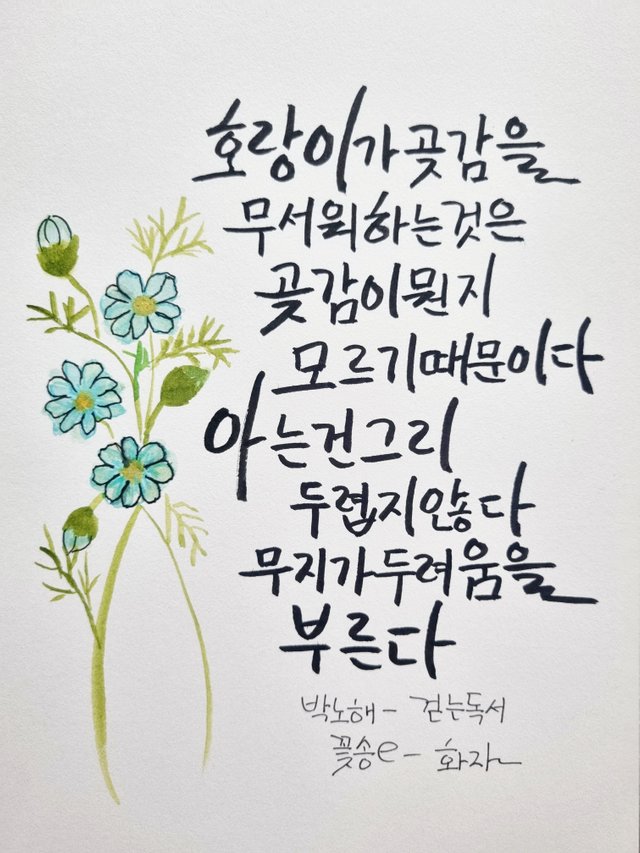 호랑이가 곶감을
무서워하는 것은
곶감이 뭔지
모르기 때문이다
아는 건 그리
두렵지 않다
무지가 두려움을
부른다
박노해 - 걷는 독서
꽃송e - 화자